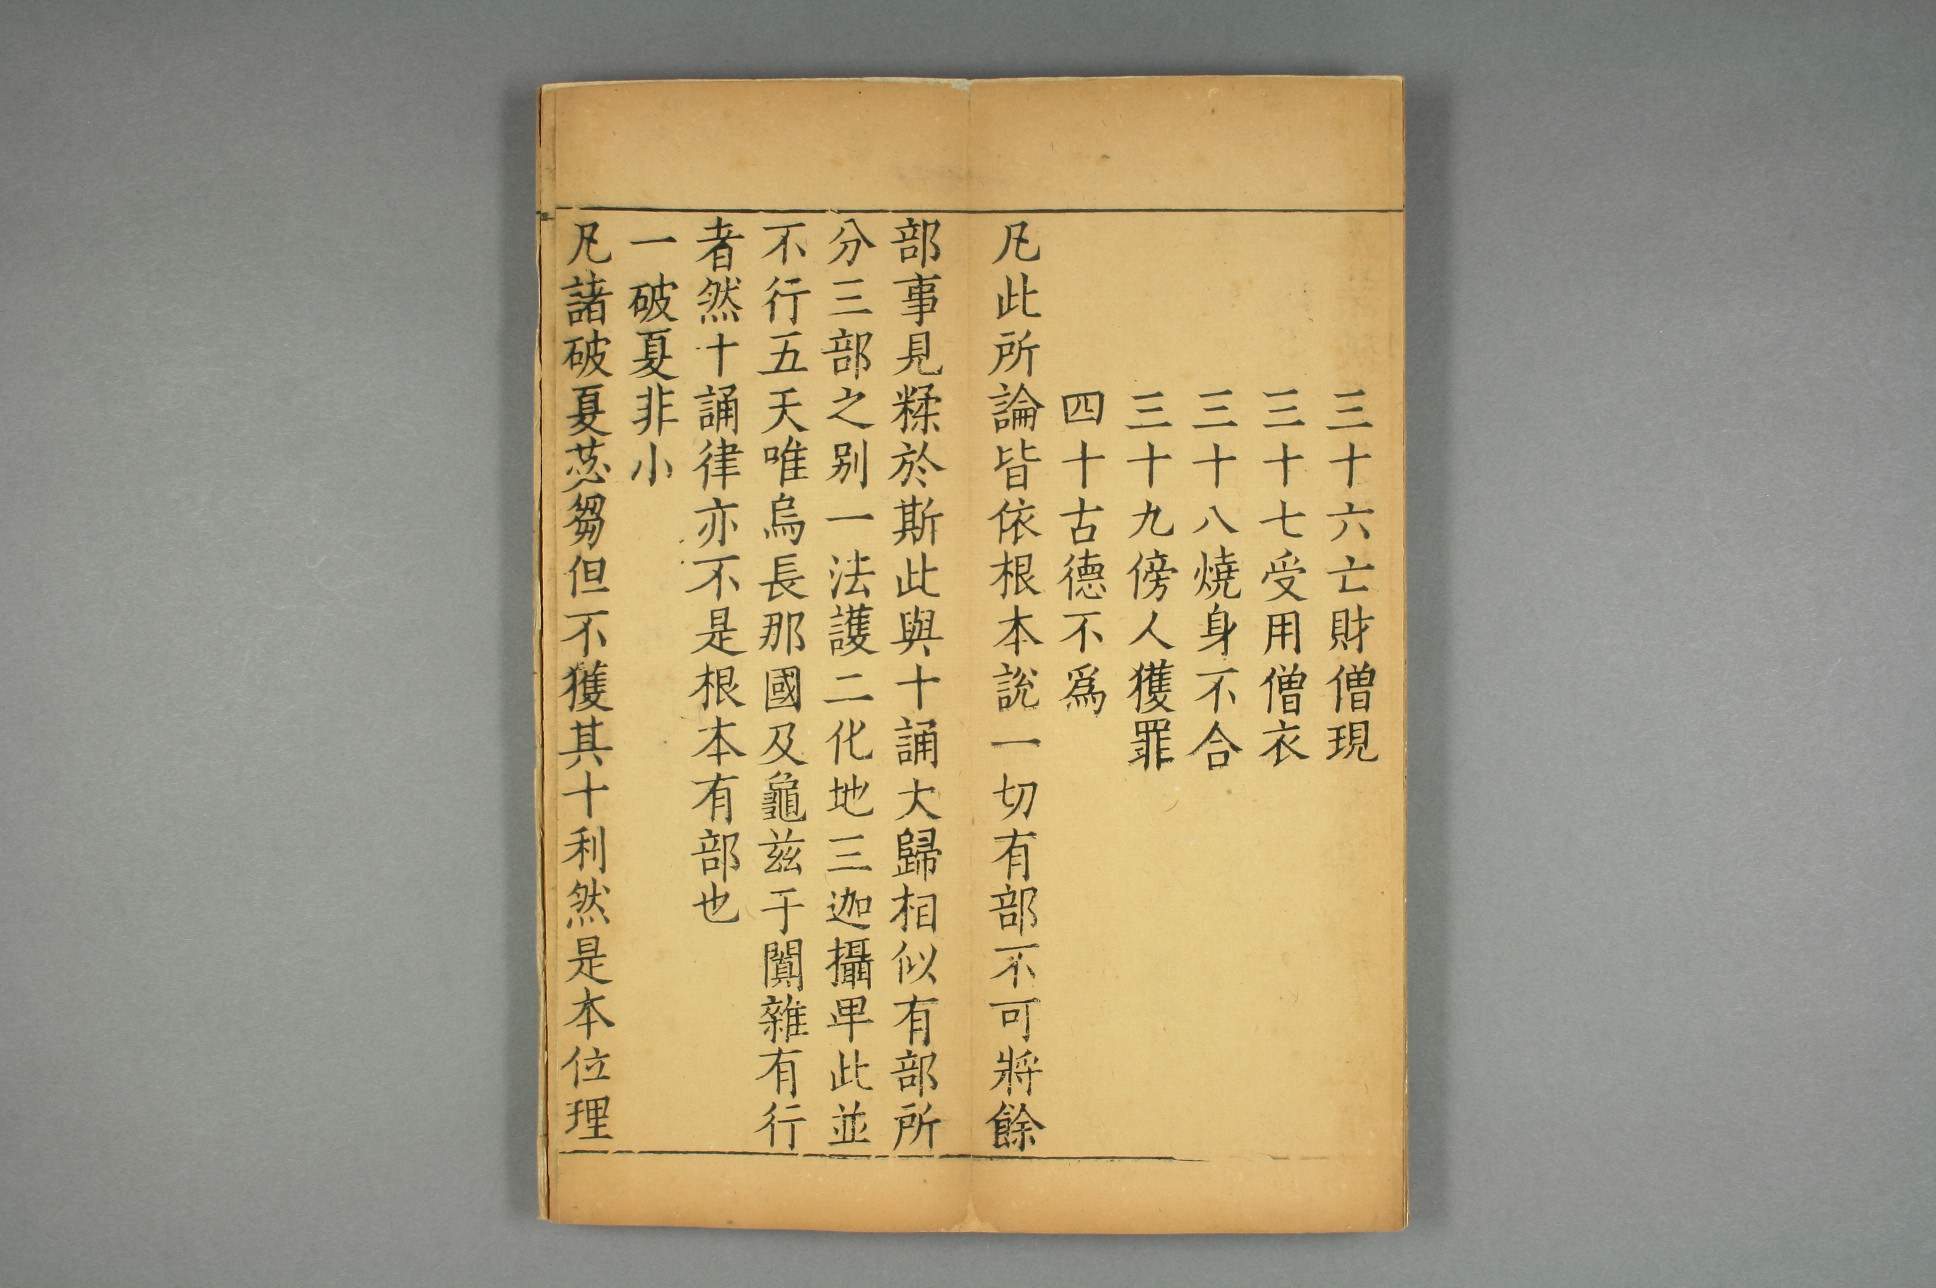 三十六亡財僧現
三十七受用僧衣
三十八燒身不合
三十九傍人獲罪
四十古德不爲
凡此所論皆依根本說一切有部不可將餘
部事見糅於斯此與十誦大歸相似有部所
分三部之別一法護二化地三迦攝卑此並
不行五天唯烏長那國及龜茲于闐雜有行
者然十誦律亦不是根本有部也
一破夏非小
凡諸破夏苾芻但不獲其十利然是本位理